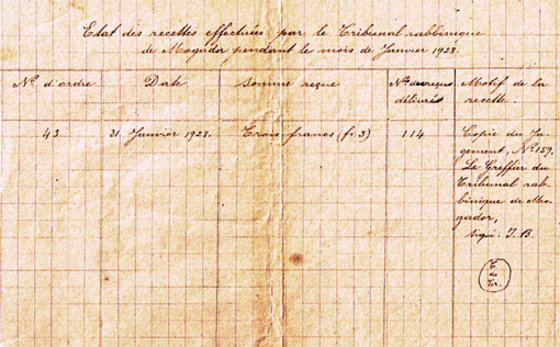 Etat des recettes effectuées par le Tribunal rabbinique
de Mogador pendant le mois de Janvier 1928.
No. d'ordre
Date
Somme reçue
Nos. des reçus
délivrés
Motif de la
recette.
43
31 Janvier 1928.
Trois francs (fr 3)
114
Copie du Ju-
gement, No. 159.
Le Greffier du
Tribunal rab-
binique de Mo-
gador,
signé: J. B.